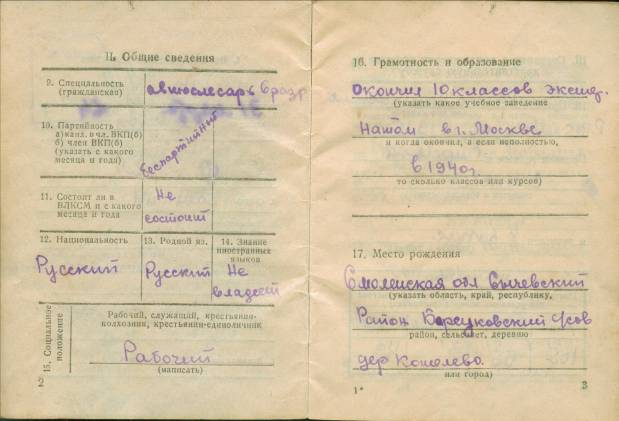 II. Общие сведения
9. Специальность
(гражданская)
автослесарь 6 разр
10. Партийность
а) канд. в чл. ВКП(б)
б) член ВКП(б)
(указать с какого
месяца и года)
беспартийный
11. Состоит ли в
ВЛКСМ и с какого
месяца и года
Не
состоит
12. Национальность
Русский
13. Родной яз.
Русский
14. Знание
иностранных
языков
Не
владеет
15. Социальное
положение
Рабочий, служащий, крестьянин-
колхозник, крестьянин-единоличник
Рабочий
(написать)
2
16. Грамотность и образование
Окончил 10 классов
(указать какое учебное заведение
в г. Москве
и когда окончил, а если неполностью,
в 1940г.
то сколько классов или курсов)
17. Место рождения
Смоленская обл Сычевский
(указать область, край, республику,
Район
район, сельсовет, деревню
дер Кошелево
или город)
1*
3